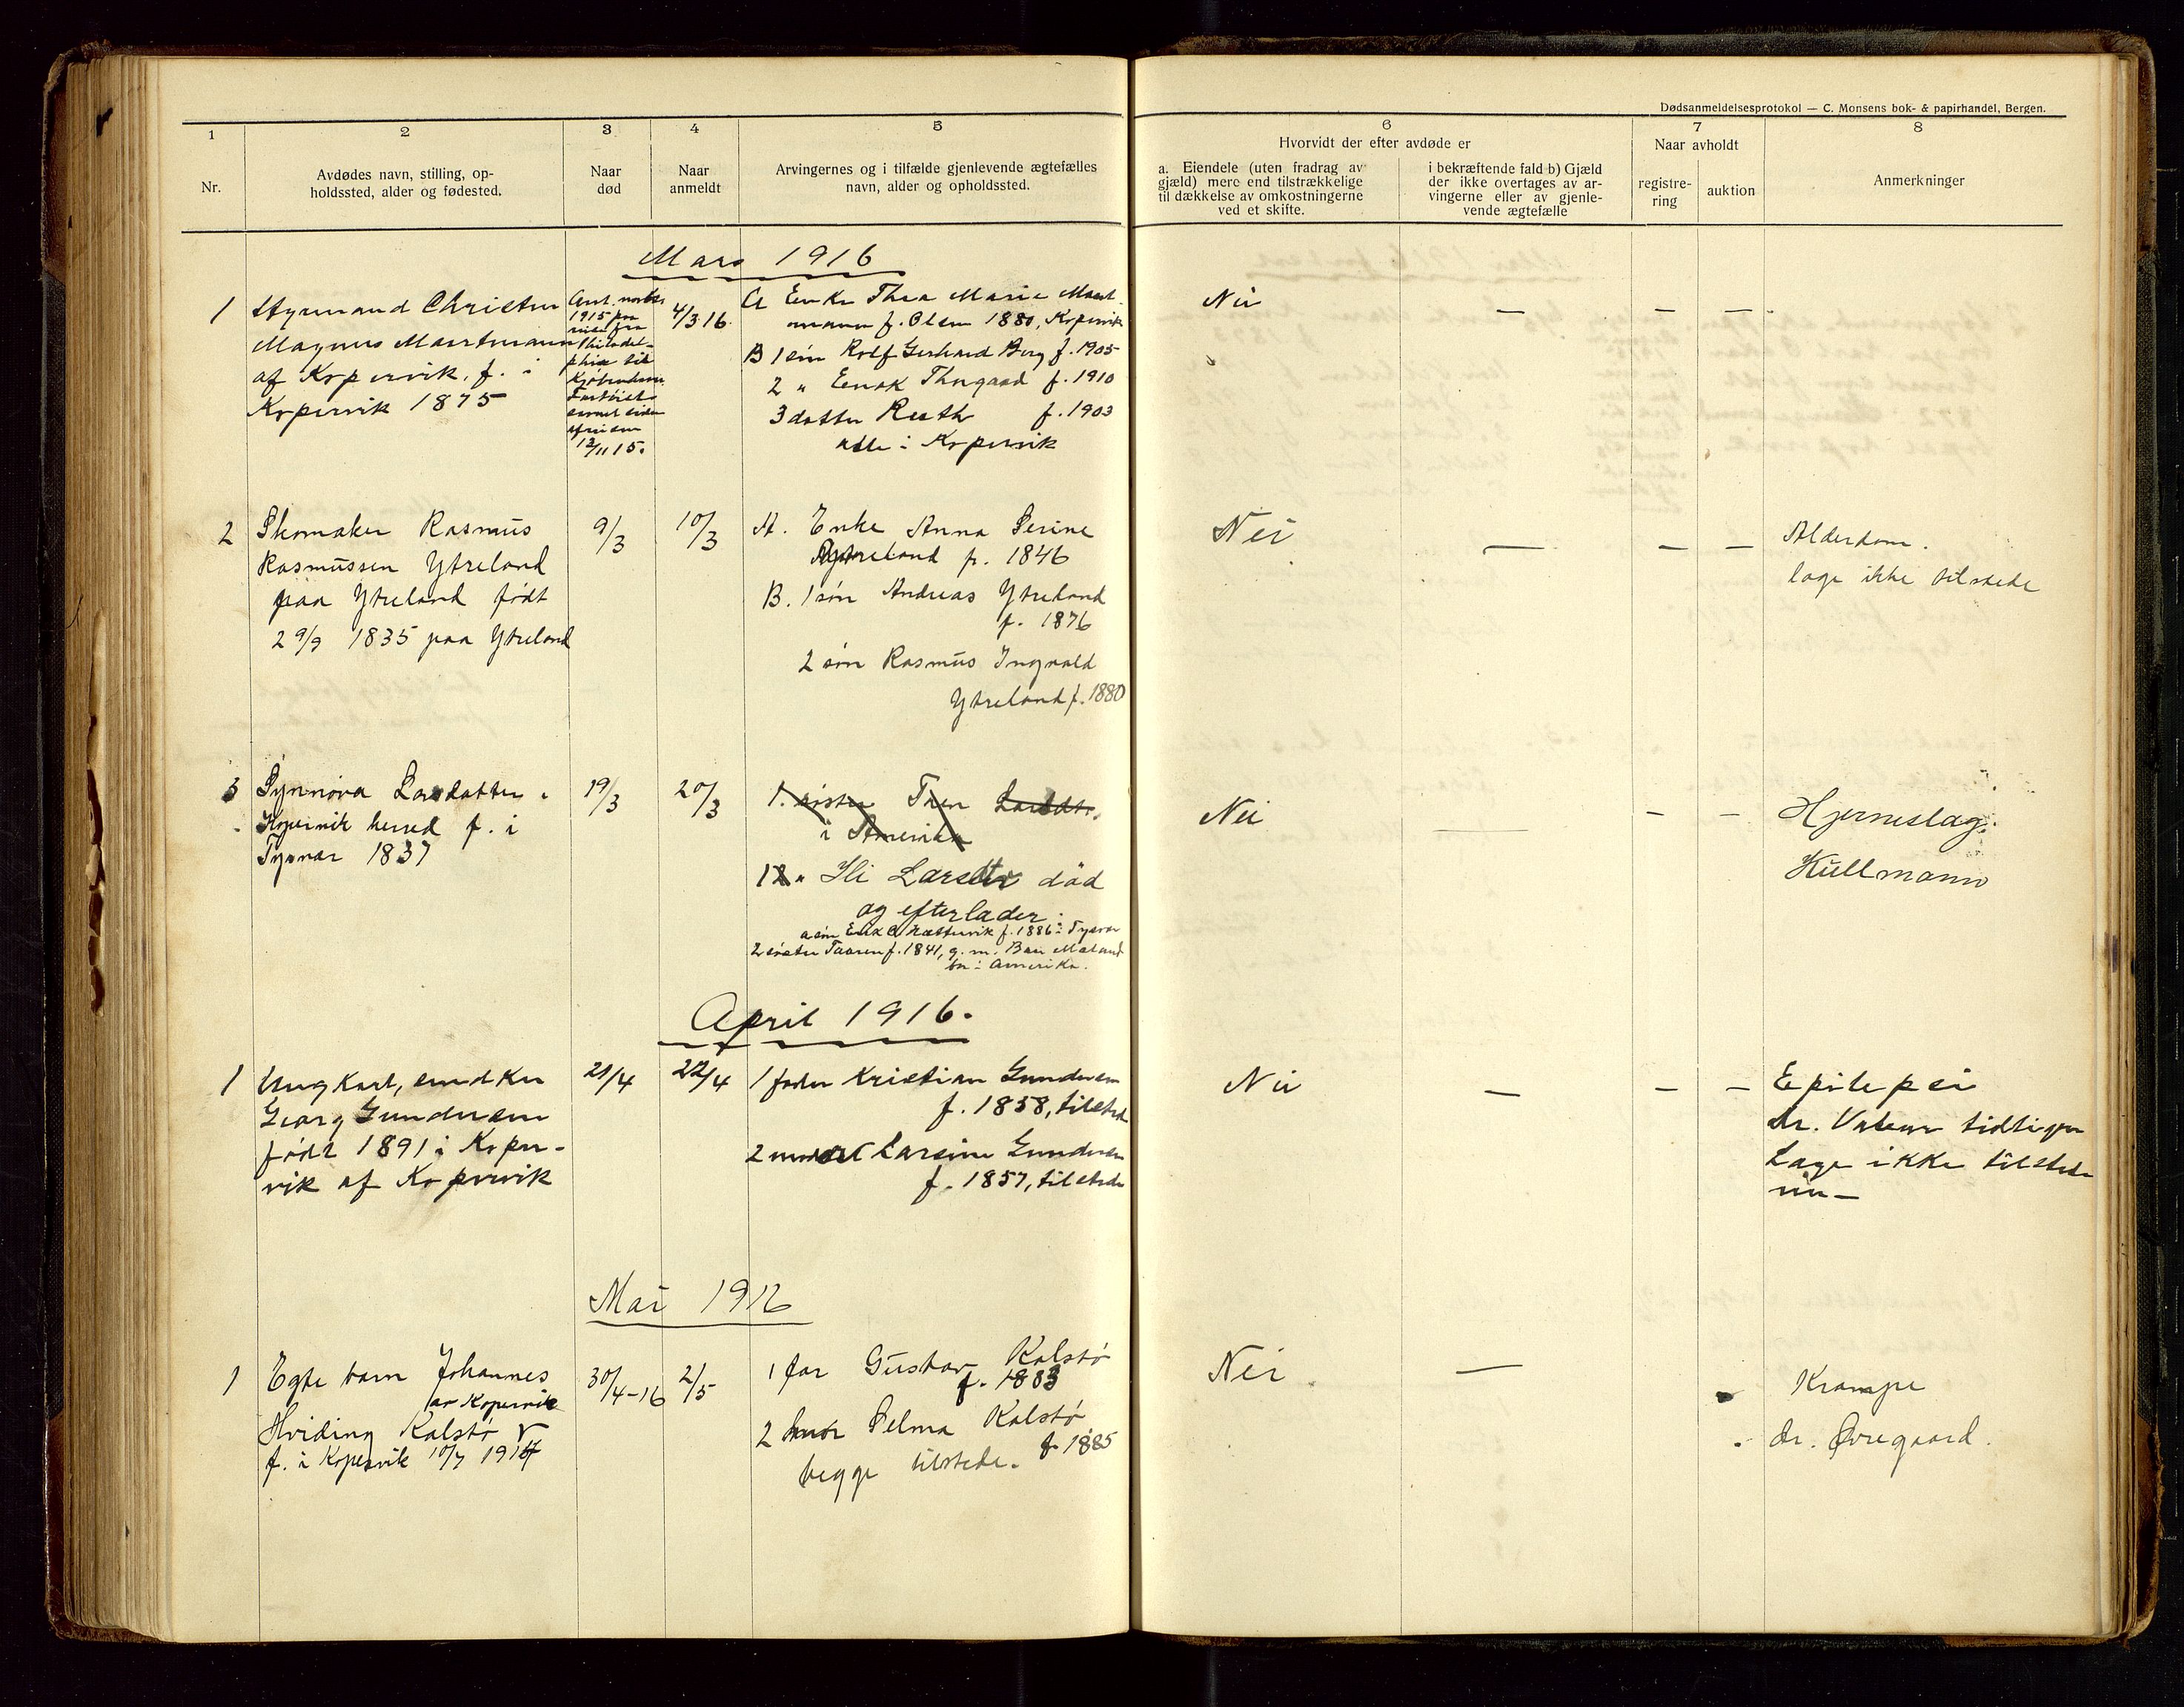 Dødsanmeldelsesprotokol — C. Monsens bok- & papirhandel, Bergen.
1
2
3
4
5
6
7
8
Nr.
Avdødes navn, stilling, op-
holdssted, alder og fødested.
Naar
død
Naar
anmeldt
Arvingernes og i tilfælde gjenlevende ægtefælles
navn, alder og opholdssted.
Hvorvidt der efter avdøde er
a. Eiendele (uten fradrag av
gjæld) mere end tilstrækkelige
til dækkelse av omkostningerne
ved et skifte.
i bekræftende fald b) Gjæld
der ikke overtages av ar-
vingerne eller av gjenle-
vende ægtefælle
Naar avholdt
registre-
ring
auktion
Anmerkninger
Mars 1916
1
Styrmand Christen
Magnus
af Kopervik, f. i
Kopervik 1875
1915 paa
reise fra
Philadel-
phia til
Kjøbenhavn
12/11 15.
4/3 16.
A Enke Thea Marie
f. Olsen 1880, Kopervik
B 1 søn Rolf Gerhard Berg f. 1905
2 " Enok Thorgaad f. 1910
3 datter Ruth f. 1903
alle i Kopervik
Nei
—
—
—
2
Skomaker Rasmus
Rasmussen Ytreland
paa Ytreland født
29/9 1835 paa Ytreland
9/3
10/3
A. Enke Anna Serine
Ytreland f. 1846
B. 1 søn Andreas Ytreland
f. 1876
2 søn Rasmus Ingvald
Ytreland f. 1880
Nei
—
—
—
Alderdom.
læge ikke tilstede
3
Synnøva Larsdatter i
Kopervik herred f. i
Tysvær 1837
19/3
20/3
1. søster Larsdtr.
i Amerika
12 " Ili Larsdtr død
og efterlader:
a søn f. 1886 i Tysvær
2 søster Taaren f. 1841, g. m.
bor i Amerika.
Nei
—
—
—
Hjerneslag.
Kullmann
April 1916.
1
Ungkarl, snedker
Georg Gundersen
født 1891 i Koper-
vik af Kopervik
21/4
22/4
1 fader Kristian Gundersen
f. 1858, tilstede
2 mor Larsine Gundersen
f. 1857, tilstede
Nei
—
—
—
Epilepsi
Dr. tidligere
Læge ikke tilstede
nu —
Mai 1916
1
Egte barn Johannes
av Kopervik
Hviding Kalstø
f. i Kopervik 10/7 1914
30/4-16
2/5
1 far Gustav Kalstø
f. 1883
2 mor Selma Kalstø
f. 1885
begge tilstede.
Nei
—
Krampe
dr. Øvregaard.